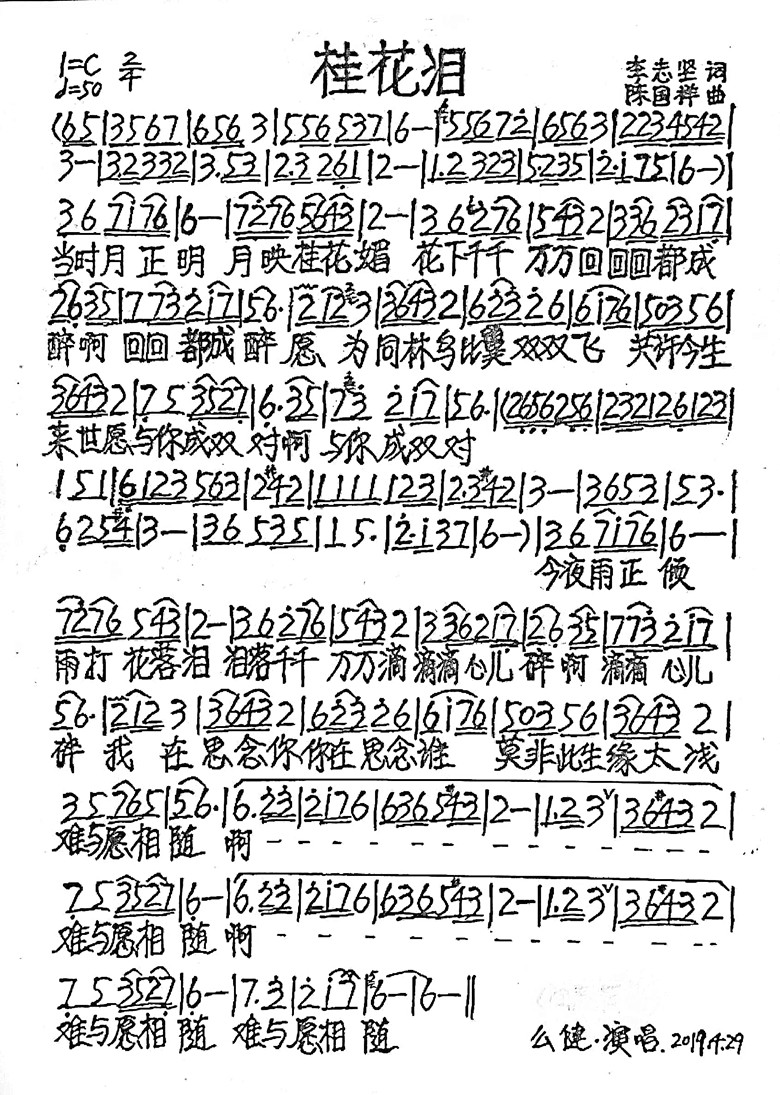 桂花泪
1=C 2/4
♩=50
李志坚 词
陈国祥 曲
(65|3567|656 3|556537|6—|55672̇|6563|2234542|
3—|32332|3.53|2.3 261|2—|1.2323|5.235|2̇.1̇75|6—)|
36 71̇76|6—|72̇76 5643|2—|36 2̇76|5432|336 2̇31̇7|
当时月正明 月映桂花媚 花下千千 万万回回回都成
2635|773̇2̇1̇7|56.|2123|36432|62̇3̇2̇6|61̇76|50356|
醉啊 回回都成醉 愿 为同林鸟比翼双双双飞 共许今生
36432|753527|6.35|73̇ 2̇1̇7|56.|(2656256|232126123|
来世愿与你成双对啊 与你成双对
151|6123563|2#42|1111123|2.3#42|3—|3653|53.|
625#4|3—|36535|15.|2̇.1̇37|6—)|3671̇76|6——|
今夜雨正倾
72̇76 543|2—|362̇76|5432|3362̇1̇7|2635|773̇2̇1̇7|
雨打花落泪 泪落千千 万万滴滴滴心儿碎啊 滴滴心儿
56.|2123|36432|62̇3̇2̇6|61̇76|50356|36432|
碎 我在思念你你在思念谁 莫非此生缘太浅
35765|56.|6.2̇3̇|2̇1̇76|6365#43|2—|1.23ᵛ|36#432|
难与愿相随 啊 - - - - - - - - - - - - -
753527|6—|6.2̇3̇|2̇1̇76|6365#43|2—|1.23ᵛ|36#432|
难与愿相随 啊 - - - - - - - - - - - -
753527|6—|7.3̇|2̇1̇7|6—|6—‖
难与愿相随 难与愿相随
么健·演唱.2019.4.29